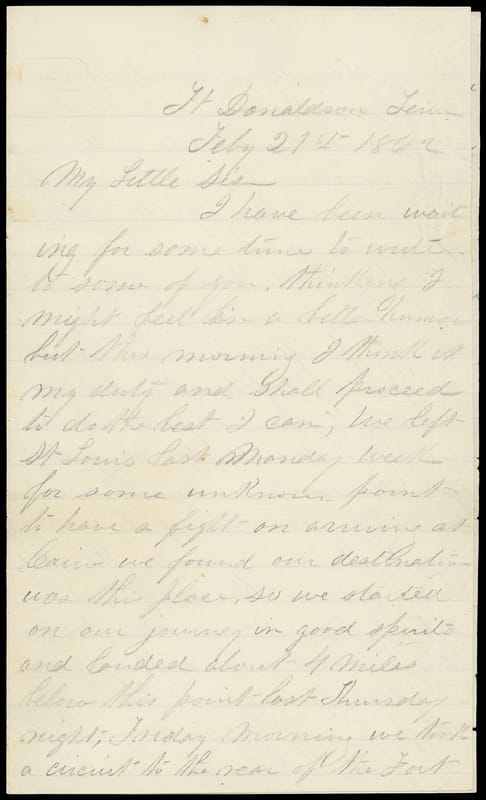 Ft Donaldson Tenn
Feby 21st 1862
My Little Sis
I have been wait
ing for some time to write
to some of you, thinking I
might feel in a better humor
but this morning I think it
my duty and Shall proceed
to do the best I can, We left
St Louis last Monday week
for some unknown point
to have a fight on arriving at
Cairo we found our destination
was this place, so we started
on our journey in good spirits
and landed about 4 miles
below this point last Thursday
night, Friday morning we took
a circuit to the rear of the Fort